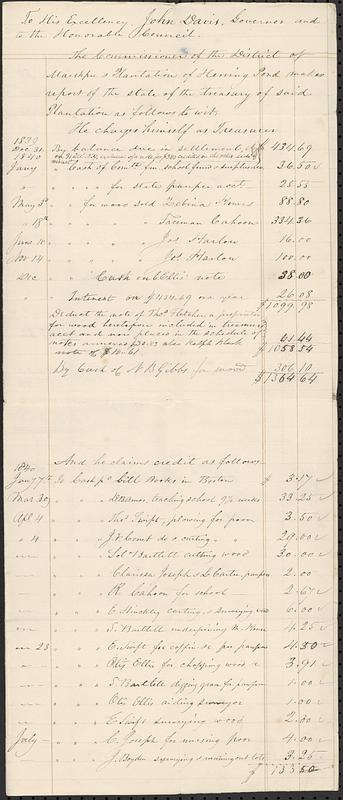 To His Excellency, John Davis, Governor and
to the Honorable Council.
The Commissioner of the District of
Marshpee & Plantation of Herring Pond makes
report of the state of the treasury of said
Plantation as follows to wit.
He charges himself as Treasurer
1839
Dec. 31. By balance due in settlement, $ 434.69
1840
Jany " Cash of Comth for school fund & 36.50
" " " for state pauper acct. 25.55
May 5th " for wood sold Zebina Howes 88.80
" 18th " " " " Freeman Cahoon 334.36
June 10 " " " " Jos Harlow 16.00
Nov 14 " " " " Jos Harlow 100.00
Dec " Cash on E Ellis' note 38.00
" Interest on $434.69 one year 26.08
$1099.98
Deduct the note of Thos Fletcher a proprietor
for wood heretofore included in treasurers
acct and now placed in the schedule of
notes annexed $30.83 also Ralph Black
note of $10.61 41.44
$1058.54
By Cash of N B Gibbs for wood 306.10
$1364.64
1840 And he claims credit as follows
Jany 7th To Cash pd Gill Books in Boston $ 3.17
Mar 30 " " " D Bramer, teaching school 9½ weeks 33.25
Apl 4 " " " Thos Swift, plowing for poor 3.50
" 4 " " " J. W. do & cutting " 29.00
" " " Sol Bartlett cutting wood 30.00
" " " Clarissa Joseph & L Carter, paupers 2.00
" " " R. Cahoon for school 2.67
" " " E. Hinckley carting, & surveying wood 6.00
" " " S. Bartlett underpinning M. House 4.25
" 23 " " " E. Swift for coffin &c for pauper 4.50
" " " Otis Ellis for chopping wood & 3.91
" " " S. Bartlett digging grave for pauper 1.00
" " " Otis Ellis aiding surveyor 1.00
" " " E Swift surveying wood 2.00
July " " " C. Joseph for nursing poor 4.00
" " " J. Boyden surveying & running out lots 3.25
$ 133.50